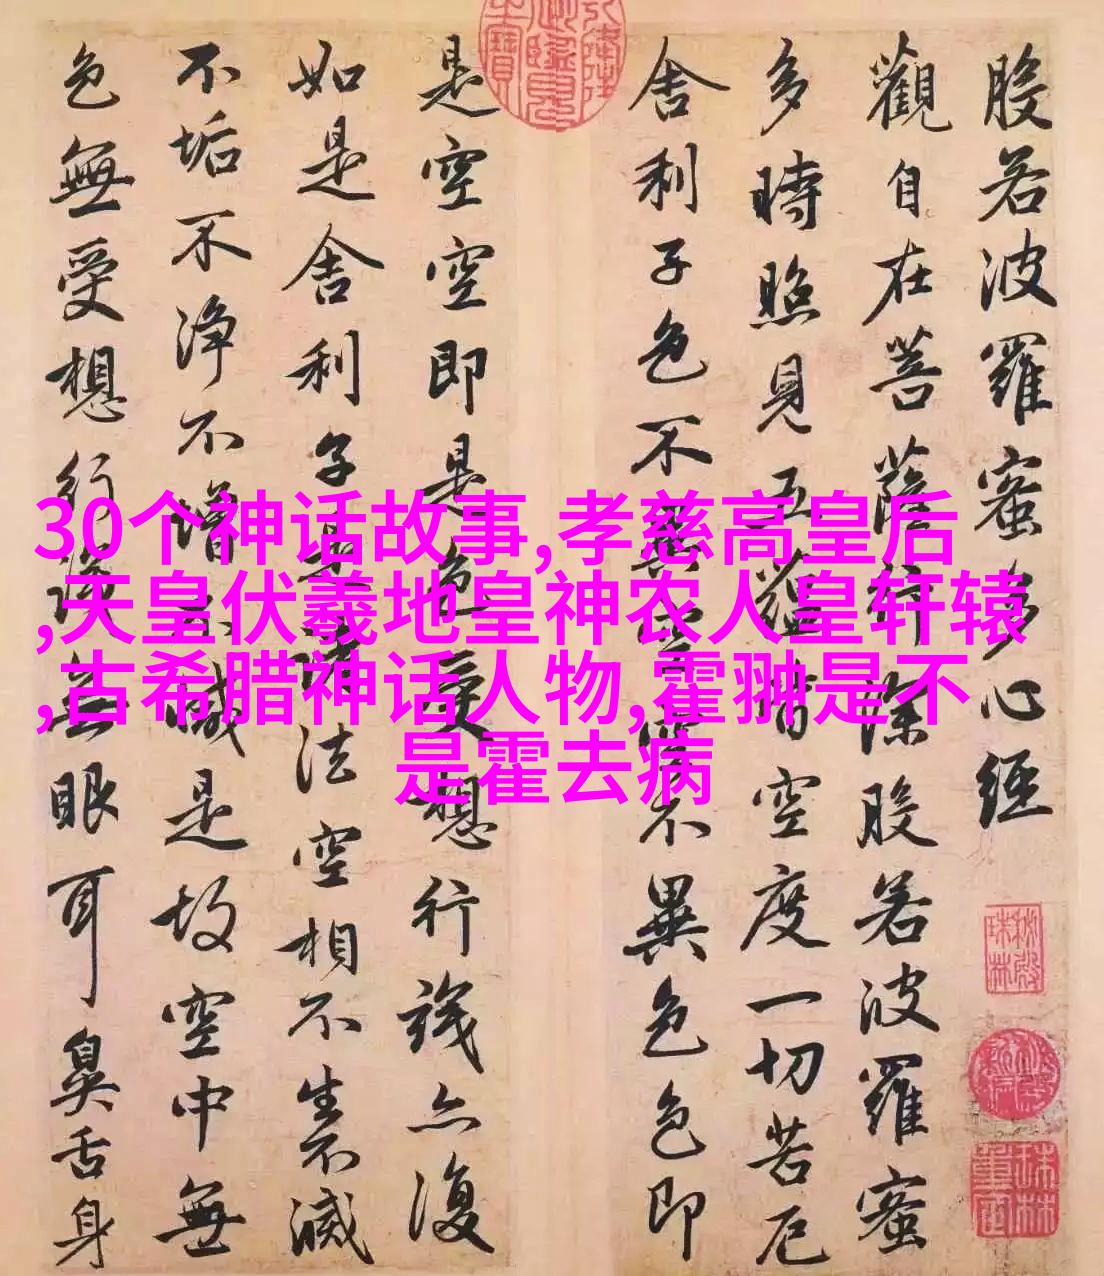 30个神话故事,孝慈高皇后
,天皇伏羲地皇神农人皇轩辕
,古希腊神话人物,霍翀是不
是霍去病
般若波羅蜜多心經
觀自在菩薩行深般若波羅蜜
多時照見五蘊皆空度一切苦厄
舍利子色不異空空不異色色即
是空空即是色受想行識亦復
如是舍利子是諸法空相不生不滅
不垢不淨不增不減是故空中無
色無受想行識無眼耳鼻舌身